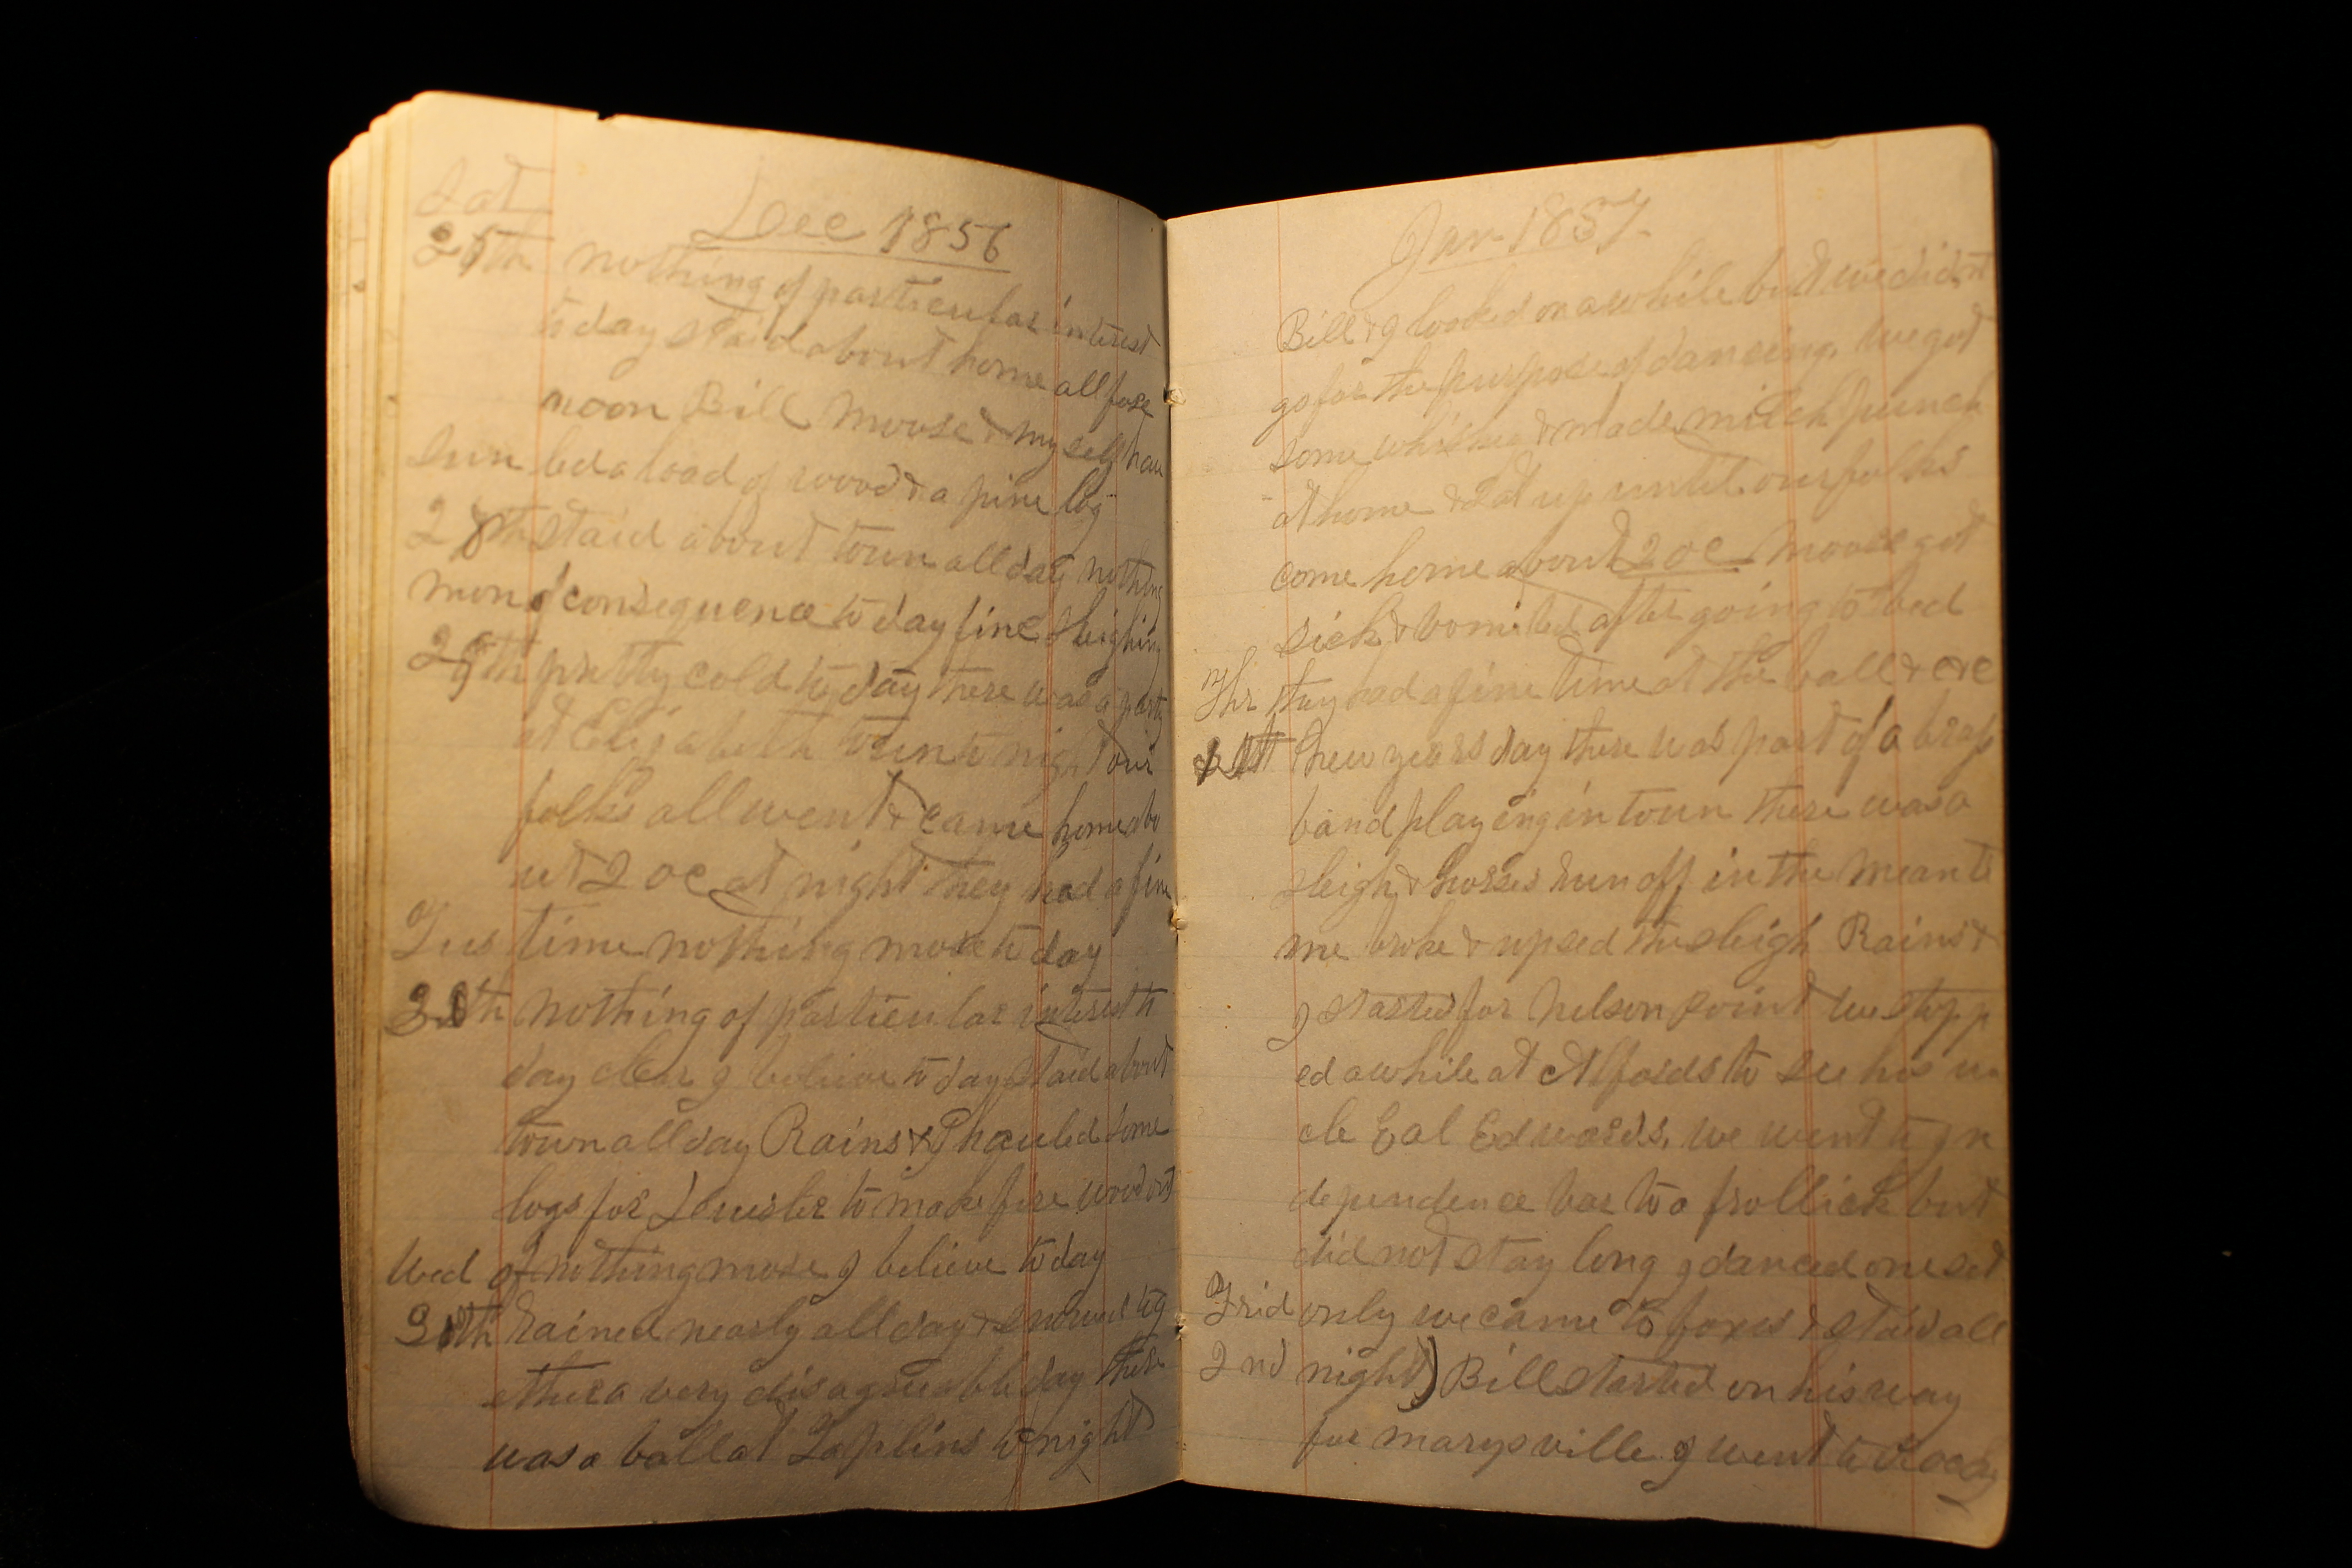 Dec 1856
Sat
nothing of particular interest
to day staid about home all fore
noon Bill Moose & my self hau
Sun led a load of wood & a pine log
28th staid about town all day nothing
mon of consequence to day fine sleighing
29th pretty cold to day there was a party
at Elizabeth town to night our
folks all went & came home abo
ut 2 oc at night they had a fine
Tues time nothing more to day
30th nothing of particular interest to
day clear I believe to day staid about
town all day Rains & I hauled some
logs for to make fire wood out
Wed of nothing more I believe to day
31th rained nearly all day & snowed tog
ether a very disagreeable day there
was a ball at Taplins to night
Jan 1857
Bill & I looked on awhile but we didnt
go for the purpose of dancing. we got
some & made milk punch
at home & sat up until our folks
come home about 2 oc Moose got
sick & vomited after going to bed
Thr they had a fine time at the ball &c &c
1st new years day there was part of a brass
band playing in town there was a
sleigh & horses run off in the meanti
me broke & upsed the sleigh Rains &
I started for Nelson point we stopp
ed awhile at Alfords to see his un
cle Edwards, we went to In
dependence bar to a frollick but
did not stay long I danced one set
Frid only we came to foxes & staid all
2nd night) Bill started on his way
for marysville I went to